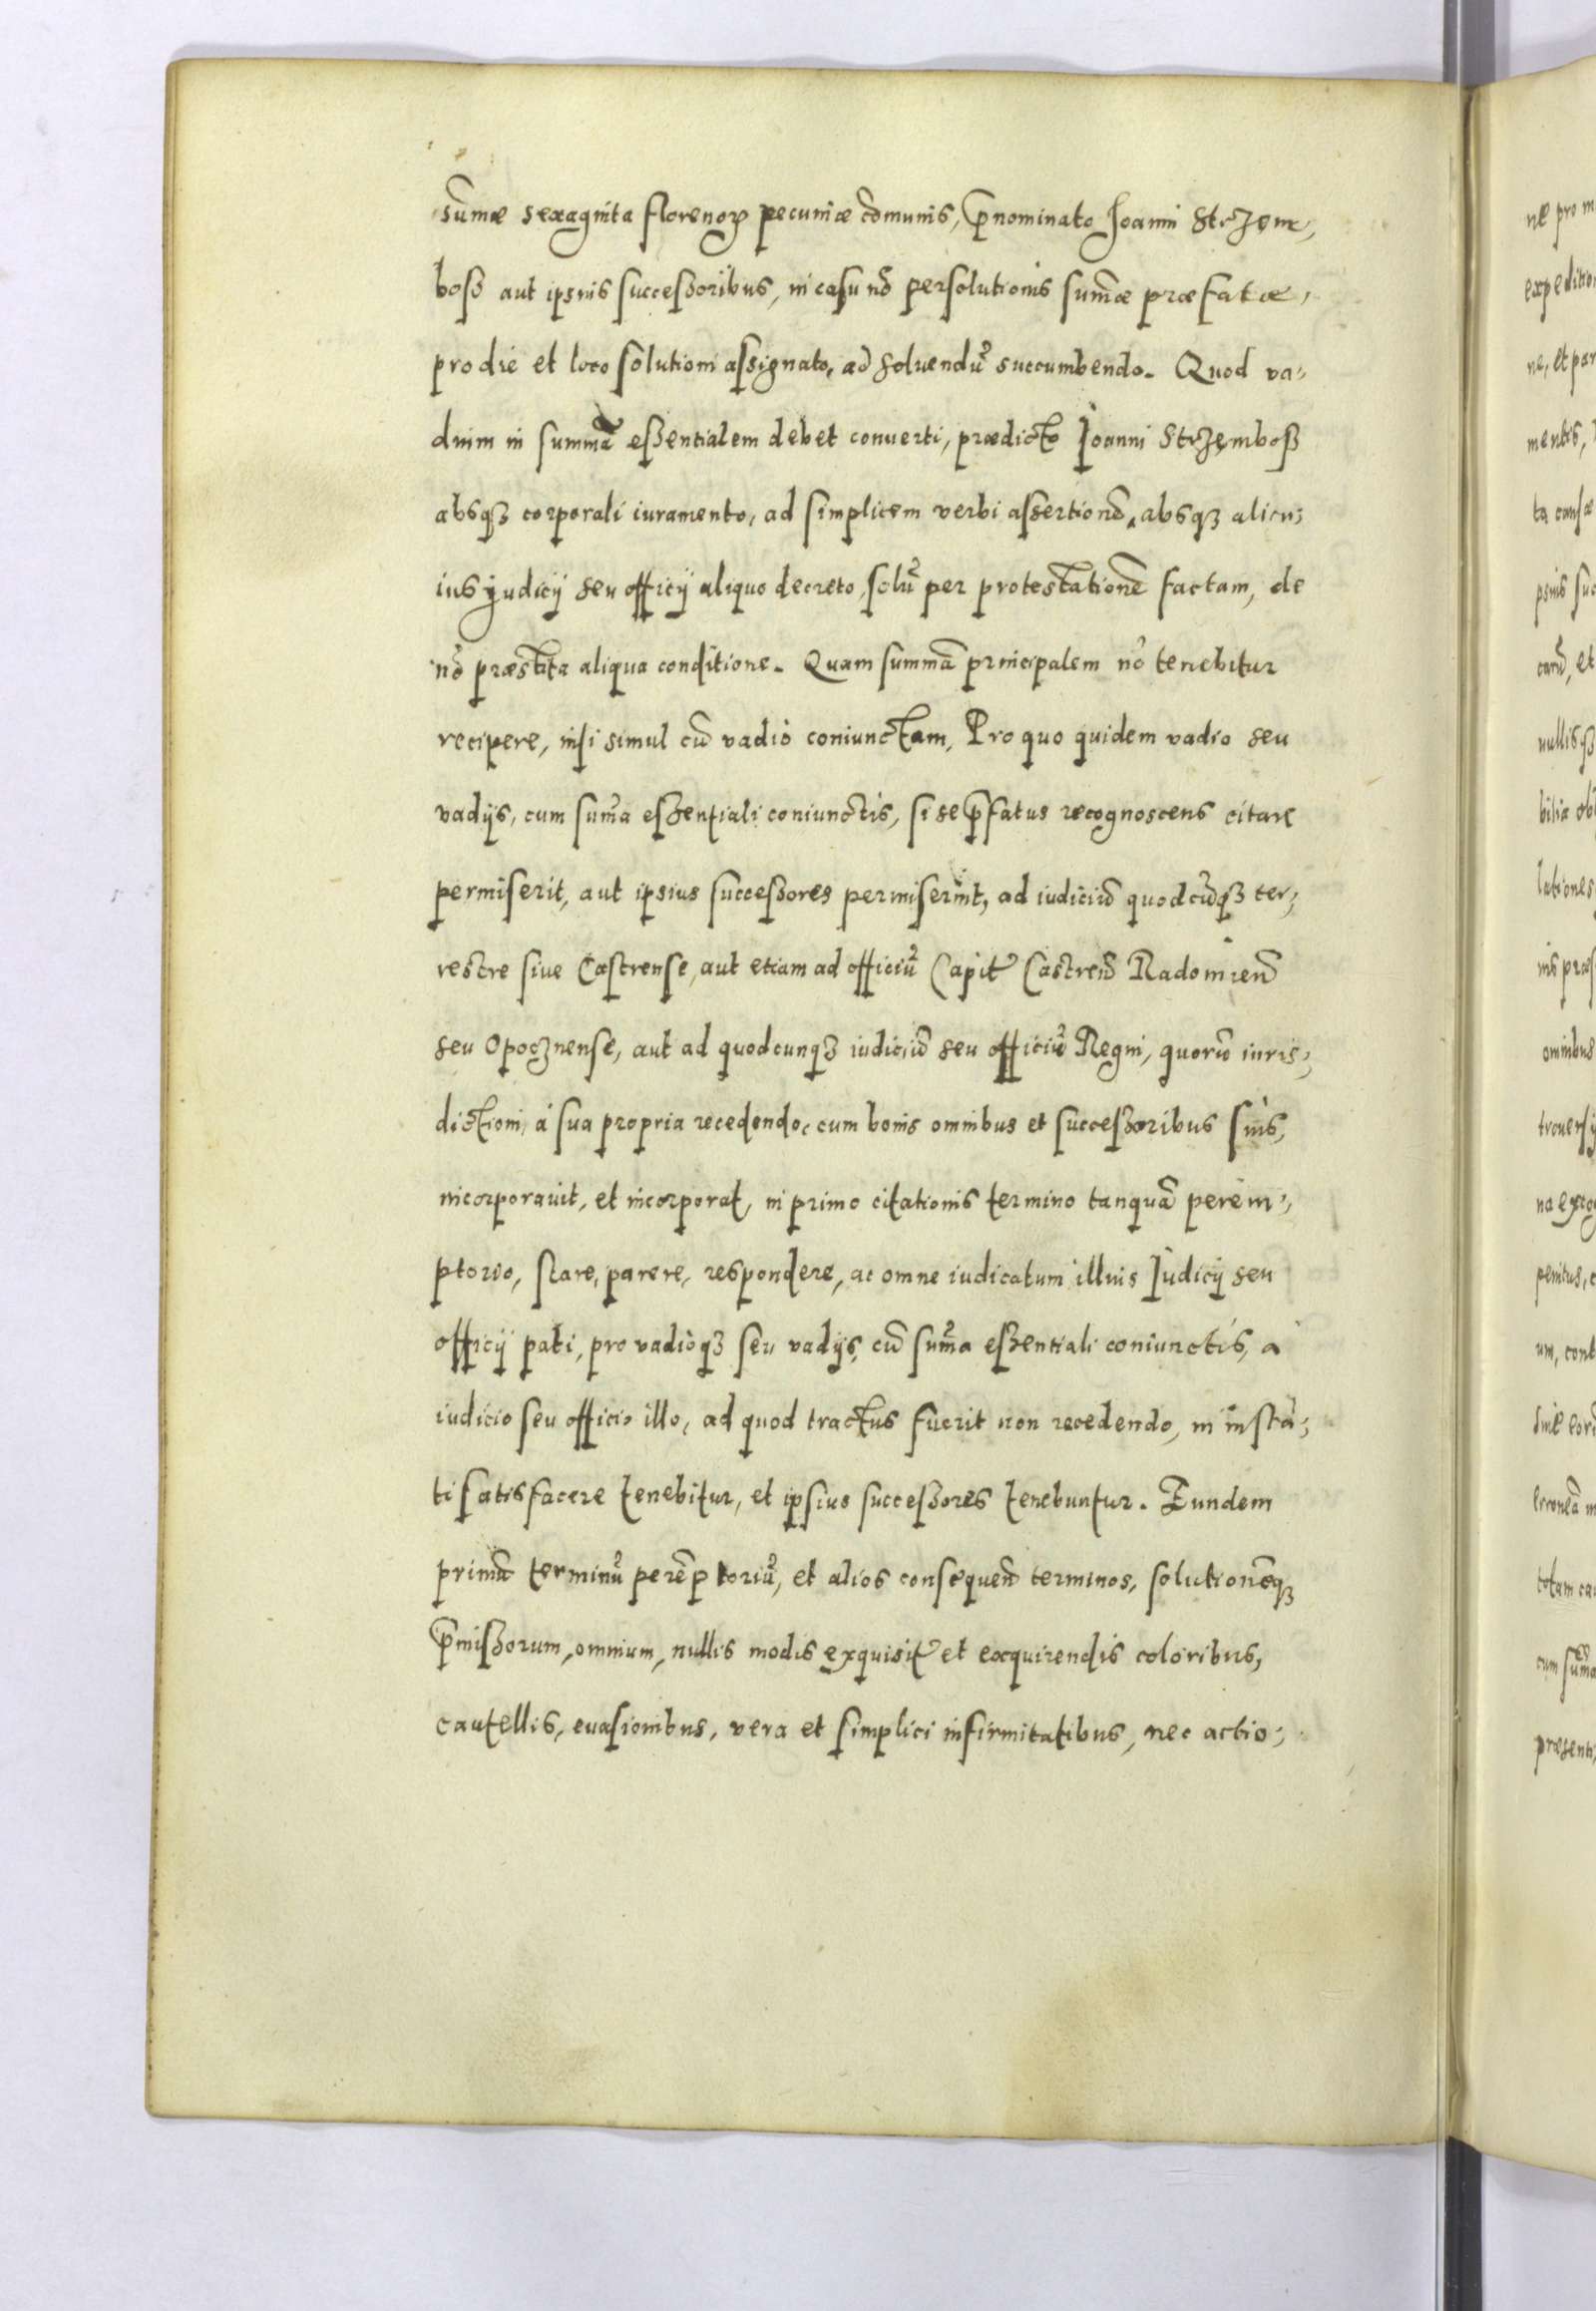 sum̃æ sexaginta florenoꝝ pecuniæ com̃unis, p̃nominato Joanni Strzem,
bosz aut ipsius successoribus, in casu nõ persolutionis sum̃æ præfatæ,
pro die et loco solutioni assignato, ad soluendũ succumbendo. Quod va,
dium in summã essentialem debet conuerti, prædicto Ioanni Strzembosz
absqꝫ corporali iuramento, ad simplicem verbi assertionẽ, absqꝫ alicu,
ius judicij seu officij aliquo decreto, solũ per protestationẽ factam, de
nõ præstita aliqua conditione. Quam summã principalem nõ tenebitur
recipere, nisi simul cũ vadio coniunctam, Pro quo quidem vadio seu
vadijs, cum sum̃a essentiali coniunctis, si se p̃fatus recognoscens citare
permiserit, aut ipsius successores permiserint, ad iudiciũ quodcũqꝫ ter,
restre siue Castrense, aut etiam ad officiũ Capit̃ Castreñ Radomieñ
seu Opocznense, aut ad quodcunqꝫ iudiciũ seu officiũ Regni, quorũ iuris,
dictioni, á sua propria recedendo, cum bonis omnibus et successoribus suis,
incorporauit, et incorporat, in primo citationis termino tanquã perem,
ptorio, stare, parere, respondere, ac omne iudicatum illius Iudicij seu
officij pati, pro vadioqꝫ seu vadijs, cũ sum̃a essentiali coniunctis, a
iudicio seu officio illo, ad quod tractus fuerit non recedendo, in insta,
ti satisfacere tenebitur, et ipsius successores tenebuntur. Eundem
primũ terminũ perẽptoriũ, et alios consequeñ terminos, solutionẽqꝫ
p̃missorum, omnium, nullis modis exquisit̃ et exquirendis coloribus,
cautellis, euasionibus, vera et simplici infirmitatibus, nec actio,